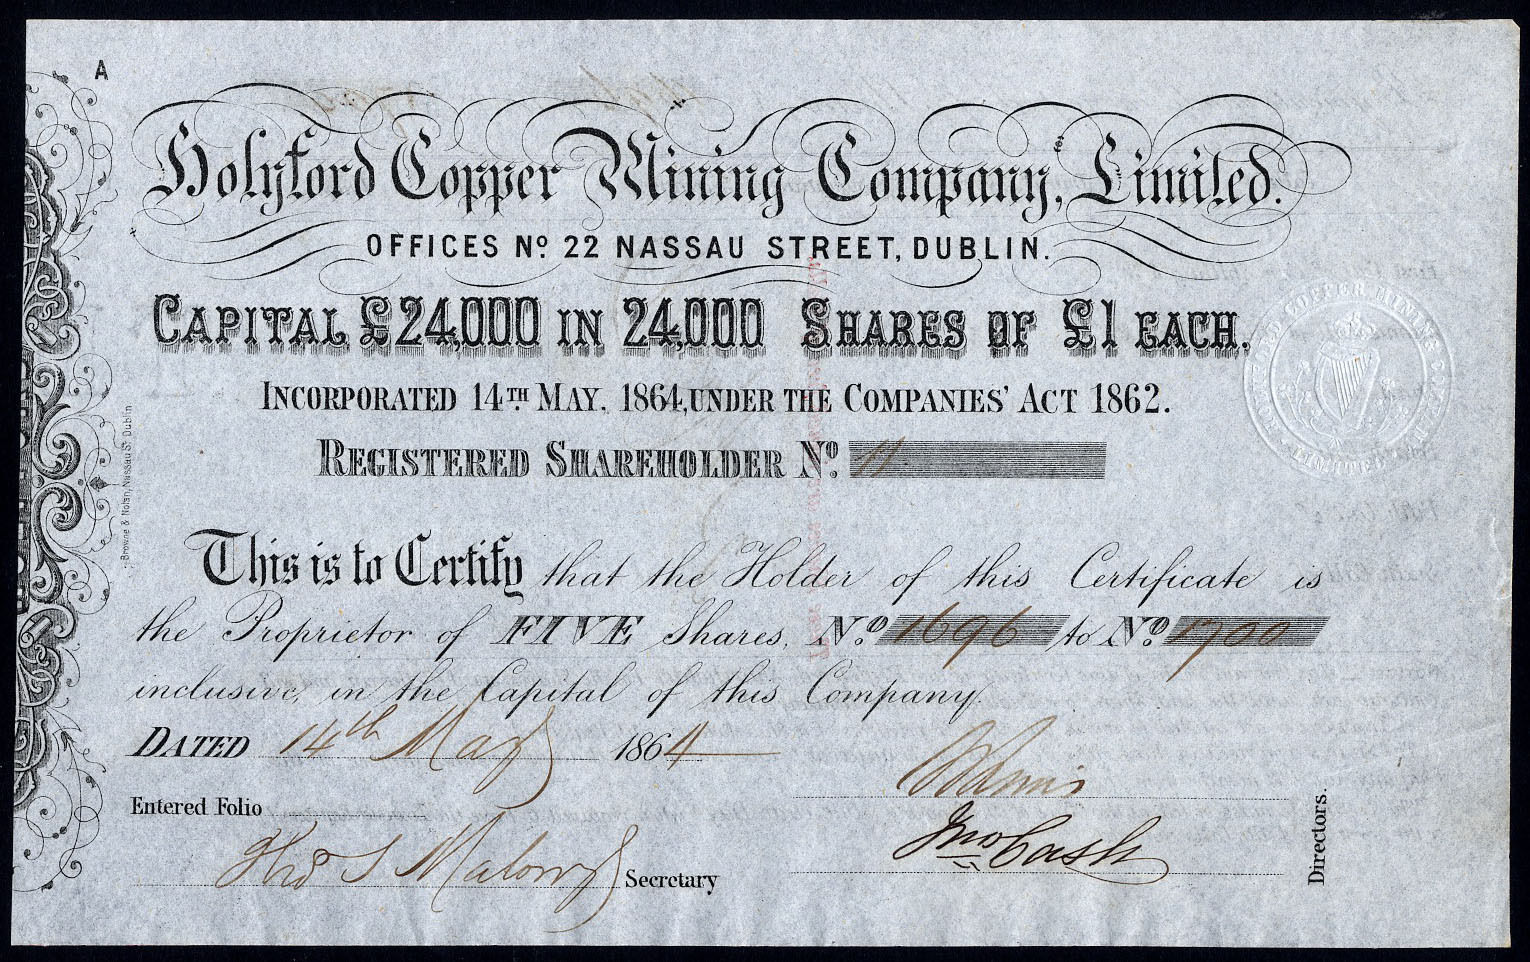 A
Holyford Copper Mining Company, Limited.
OFFICES No. 22 NASSAU STREET, DUBLIN.
CAPITAL £24,000 IN 24,000 SHARES OF £1 EACH.
INCORPORATED 14TH MAY, 1864, UNDER THE COMPANIES' ACT 1862.
REGISTERED SHAREHOLDER No. 11
This is to Certify that the Holder of this Certificate is
the Proprietor of FIVE Shares, No. 1696 to No. 1700
inclusive, in the Capital of this Company.
DATED 14th May 1864
Entered Folio
Thos S Malony Secretary
Jno Cash
Directors.
Browne & Nolan, Nassau St. Dublin
COPPER MINING
LIMITED